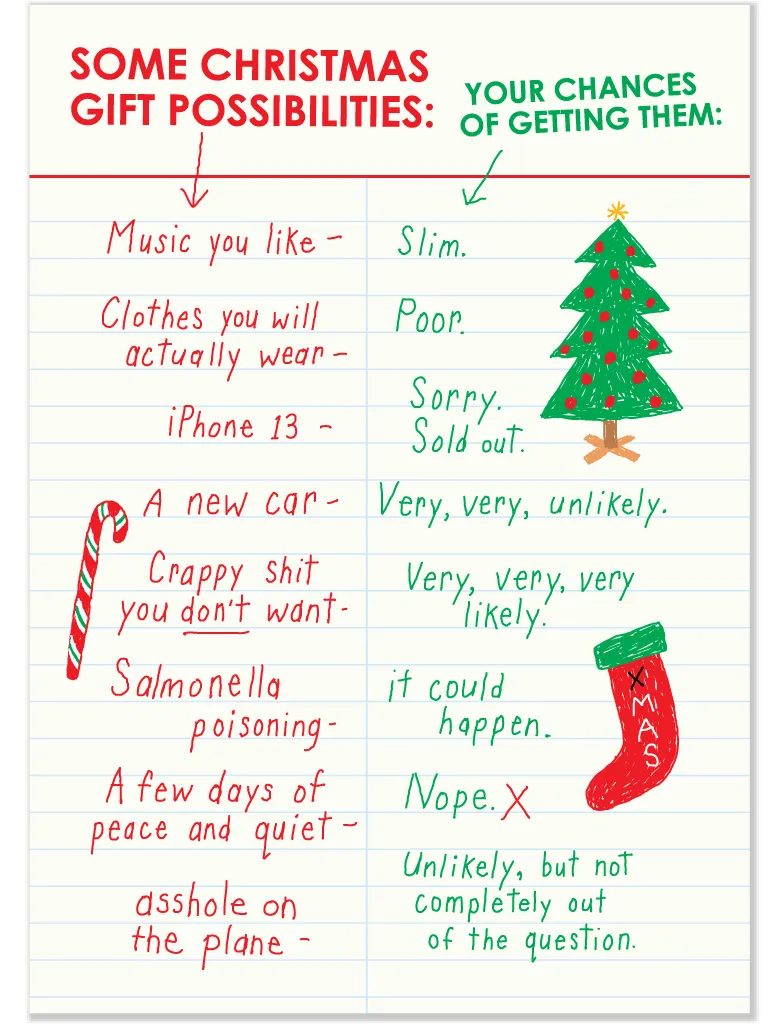 SOME CHRISTMAS
GIFT POSSIBILITIES:
YOUR CHANCES
OF GETTING THEM:
Music you like – Slim.
Clothes you will
actually wear – Poor.
iPhone 13 – Sorry.
Sold out.
A new car – Very, very, unlikely.
Crappy shit
you don't want- Very, very, very
likely.
Salmonella
poisoning- it could
happen.
A few days of
peace and quiet – Nope. X
asshole on
the plane – Unlikely, but not
completely out
of the question.
X
M
A
S